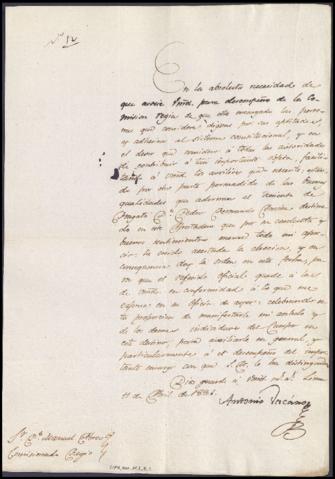 Nº 12
En la absoluta necesidad de
que auxie Vmd. para desempeño de la Co-
mision regia de que está encargado las perso-
nas que considere dignas por sus aptitudes,
y adhesion al sistema constitucional, y en
el deseo que considere á todas las autoridades
de contribuir á tan importante objeto, facili-
á Vmd. los auxilios que necesite, estan-
do por otra parte persuadido de las buenas
qualidades que adornan el teniente de
Fragata D. destina-
do en este Apostadero que por su conducta y
buenos sentimientos merece todo mi apre-
cio. Ha sido acertada la eleccion, y en
consecuencia doy la orden en esta fecha, pa-
ra que el referido oficial quede á las
de Vmd. en conformidad á lo que me
expresa en su oficio de ayer: celebrando es-
ta proporcion de manifestarle mi anhelo y
de los demas individuos del Cuerpo en
este destino, para auxiliarle en general, y
particularmente á el desempeño del impor-
tante encargo con que S.M. le ha distinguido.
Dios guarde á Vmd. mˢ. aˢ. Lima
11 de Abril de 1821.
Antonio Vacaro
Sʳ. Dⁿ. Manuel Abreu
Comisionado Regio